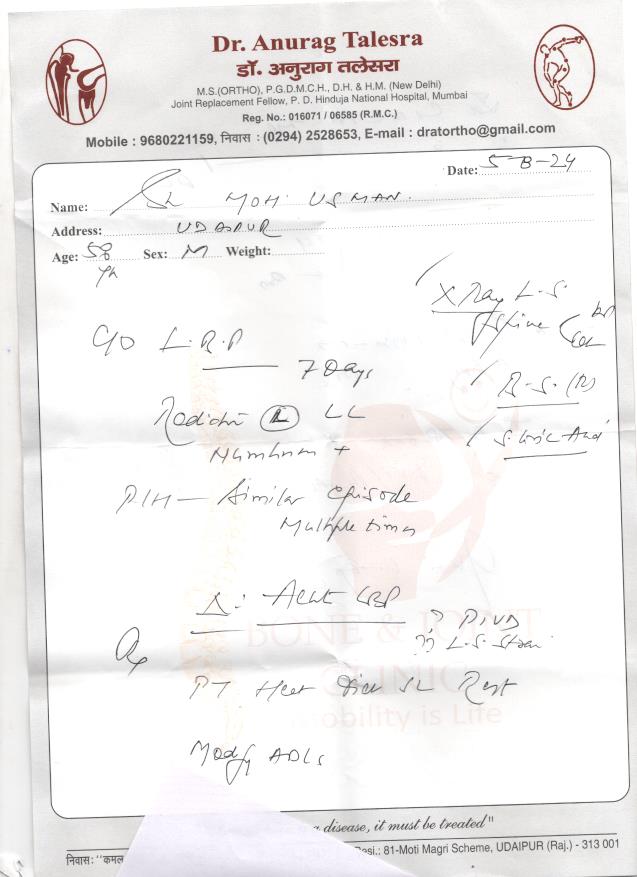 Dr. Anurag Talesra
डॉ. अनुराग तलेसरा
M.S.(ORTHO), P.G.D.M.C.H., D.H. & H.M. (New Delhi)
Joint Replacement Fellow, P. D. Hinduja National Hospital, Mumbai
Reg. No.: 016071 / 06585 (R.M.C.)
Mobile : 9680221159, निवास : (0294) 2528653, E-mail : dratortho@gmail.com
Date: 5-8-24
Name: Sh MOH. USMAN.
Address: UDAIPUR
Age: 58 Sex: M Weight:
X Ray L-S
Spine
C/O L.B.P
7 Days
LL
Numbness +
P/H — Similar episode
Multiple times
Δ: Acute LBP
? PIVD
?? L-S Strain
BONE & JOINT
CLINIC
Mobility is Life
Rx
PT Heat Rest
Modify ADLs
a disease, it must be treated"
निवास: "कमल
Resi.: 81-Moti Magri Scheme, UDAIPUR (Raj.) - 313 001